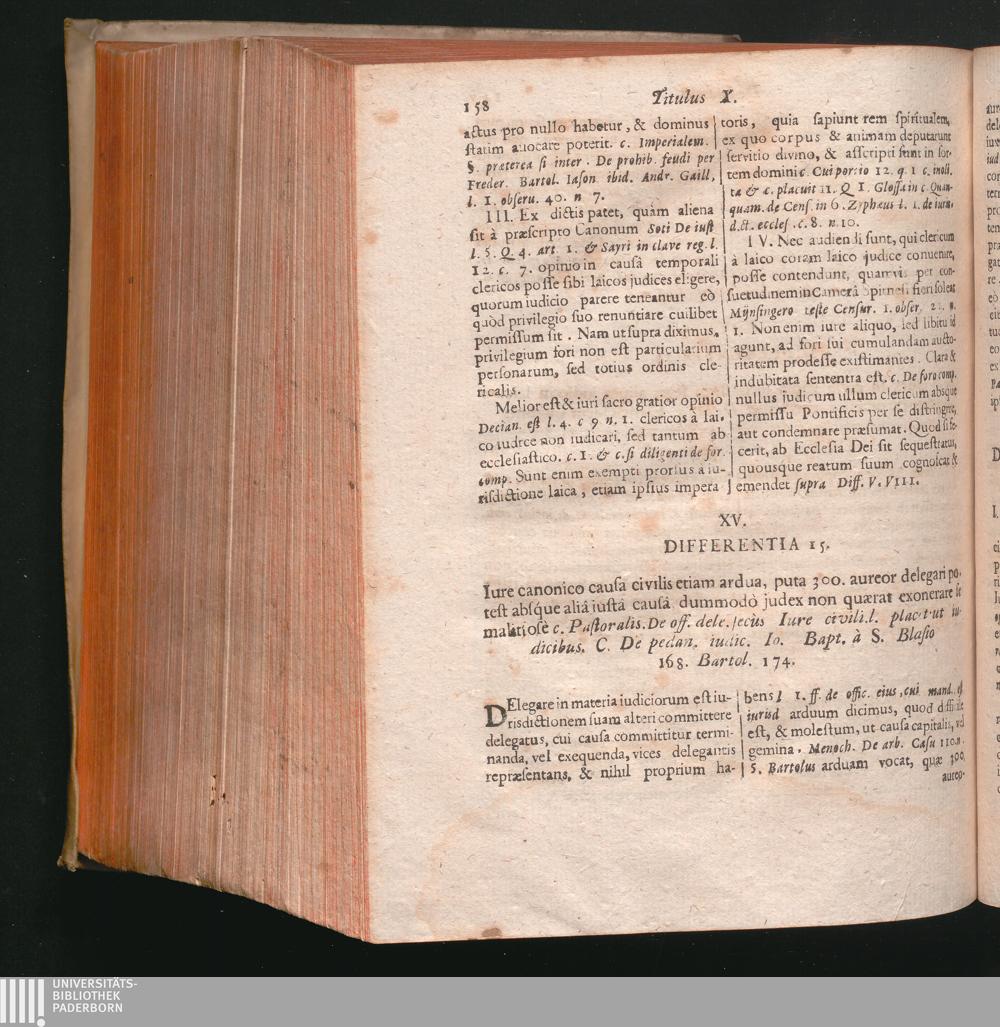 158
Titulus X.
actus pro nullo habetur, & dominus
statim auocare poterit. c. Imperialem.
§. præterea si inter. De prohib. feudi per
Freder. Bartol. Iason. ibid. Andr. Gaill,
l. 1. obseru. 40. n 7.
III. Ex dictis patet, quàm aliena
sit à præscripto Canonum Soti De iust
l. 5. Q. 4. art. 1. & Sayri in clave reg. l.
12. c. 7. opinio in causâ temporali
clericos posse sibi laicos judices eligere,
quorum iudicio parere teneantur eò
quòd privilegio suo renuntiare cuilibet
permissum sit. Nam ut supra diximus,
privilegium fori non est particularium
personarum, sed totius ordinis cle-
ricalis.
Melior est & iuri sacro gratior opinio
Decian. est l. 4. c 9 n. 1. clericos à lai-
co iudice non iudicari, sed tantum ab
ecclesiastico. c. 1. & c. si diligenti de for.
comp. Sunt enim exempti prorsus à iu-
risdictione laica, etiam ipsius impera
toris, quia sapiunt rem spiritualem,
ex quo corpus & animam deputarunt
servitio divino, & asscripti sunt in sor-
tem domini c. Cui portio 12. q. 1 c. inoli.
ta & c. placuit 11. Q 1. Glossa in c. Quan-
quam. de Cens. in 6. Zyphæus l. 1. de iurisd.
d.ct. eccles. c. 8. n. 10.
IV. Nec audiendi sunt, qui clericum
à laico coram laico judice convenire,
posse contendunt, quamvis per con-
suetudinem in Camerâ Spirensi fieri soleat
Mijnsingero teste Censur. 1. obser. 21. n.
1. Non enim iure aliquo, sed libitu id
agunt, ad fori sui cumulandam aucto-
ritatem prodesse existimantes. Clara &
indubitata sententia est. c. De foro comp.
nullus judicum ullum clericum absque
permissu Pontificis per se distringere,
aut condemnare præsumat. Quod si fe-
cerit, ab Ecclesia Dei sit sequestratus,
quousque reatum suum cognoscat &
emendet supra Diff. V. VIII.
XV.
DIFFERENTIA 15.
Iure canonico causa civilis etiam ardua, puta 300. aureor delegari po-
test absque aliâ iustâ causâ dummodò judex non quærat exonerare se
malitiosè c. Pastoralis. De off. dele. secus Iure civili. l. placuit iu-
dicibus. C. De pedan. iudic. Io. Bapt. à S. Blasio
168. Bartol. 174.
DElegare in materia iudiciorum est iu-
risdictionem suam alteri committere
delegatus, cui causa committitur termi-
nanda, vel exequenda, vices delegantis
repræsentans, & nihil proprium ha-
bens l 1. ff. de offic. eius, cui mand. est
iurisd arduum dicimus, quod difficile
est, & molestum, ut causa capitalis, vel
gemina. Menoch. De arb. Casu 110. n.
5. Bartolus arduam vocat, quæ 300.
aureo-
UNIVERSITÄTS-
BIBLIOTHEK
PADERBORN